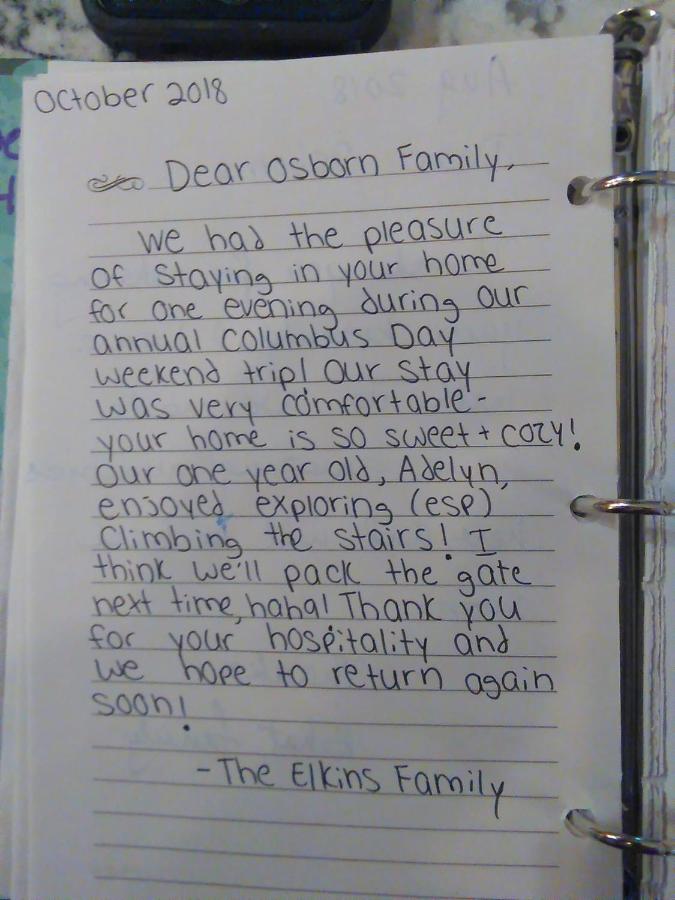 October 2018
Dear Osborn Family,
We had the pleasure
of staying in your home
for one evening during our
annual Columbus Day
weekend trip! Our stay
was very comfortable -
your home is so sweet + cozy!
Our one year old, Adelyn,
enjoyed exploring (esp)
climbing the stairs! I
think we'll pack the gate
next time, haha! Thank you
for your hospitality and
we hope to return again
soon!
- The Elkins Family